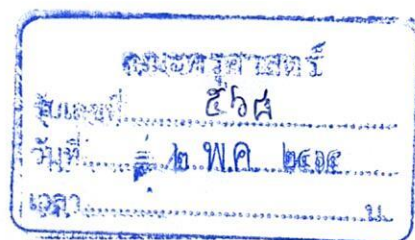 คณะครุศาสตร์
รับเลขที่ ๕๖๘
วันที่ ๒ พ.ค.
เวลา น.